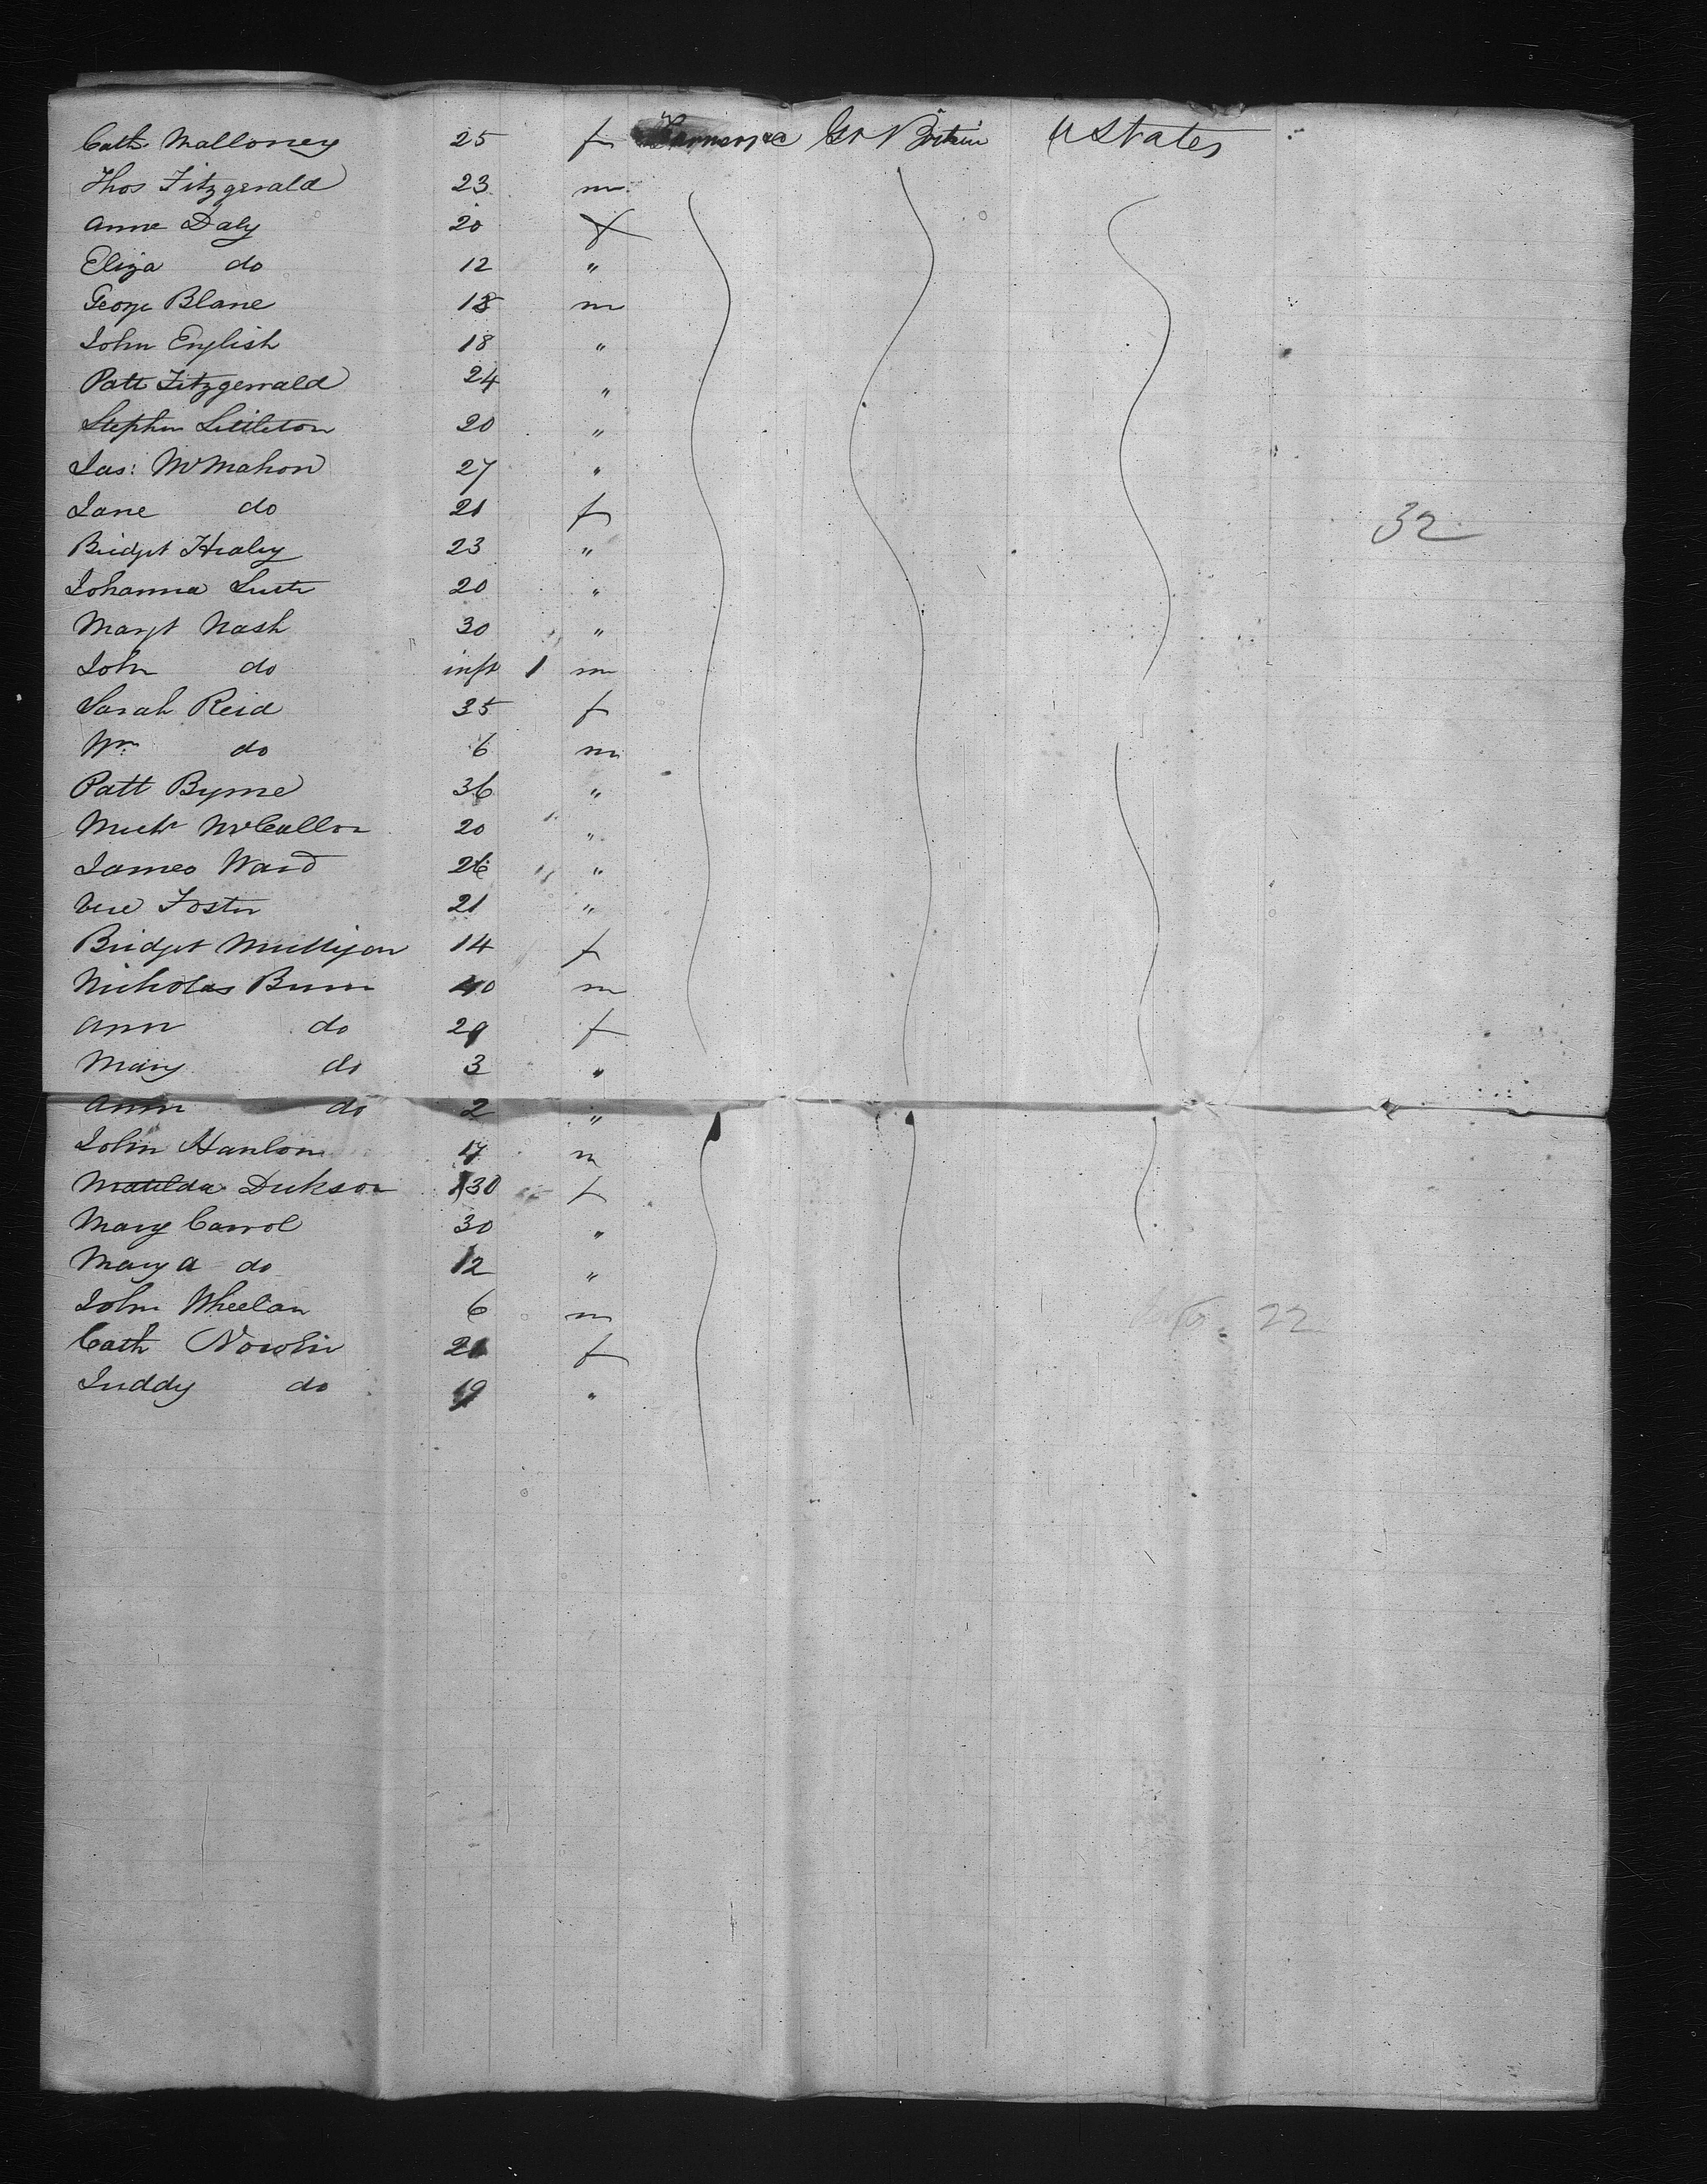 Cath Malloney 25 f Farmers &c Gt Britain U States
Thos Fitzgerald 23 m
Anne Daly 20 f
Eliza do 12 "
George Blane 18 m
John English 18 "
Patt Fitzgerrald 24 "
Stephen Littleton 20 "
Jas: McMahon 27 "
Jane do 21 f
32
Bridget Healey 23 "
Johanna 20 "
Margt Nash 30 "
John do inft 1 m
Sarah Reid 35 f
Wm do 6 m
Patt Byrne 36 "
Michl McCallon 20 "
James Ward 26 "
Vere Foster 21 "
Bridget Mulligan 14 f
Nicholas Bunn 40 m
Ann do 29 f
Mary do 3 "
Ann do 2 "
John Hanlon 17 m
Matilda Dickson 30 f
Mary Carrol 30 "
Mary A do 12 "
John Wheelan 6 m
22
Cath Nowlin 21 f
Juddy do 19 "